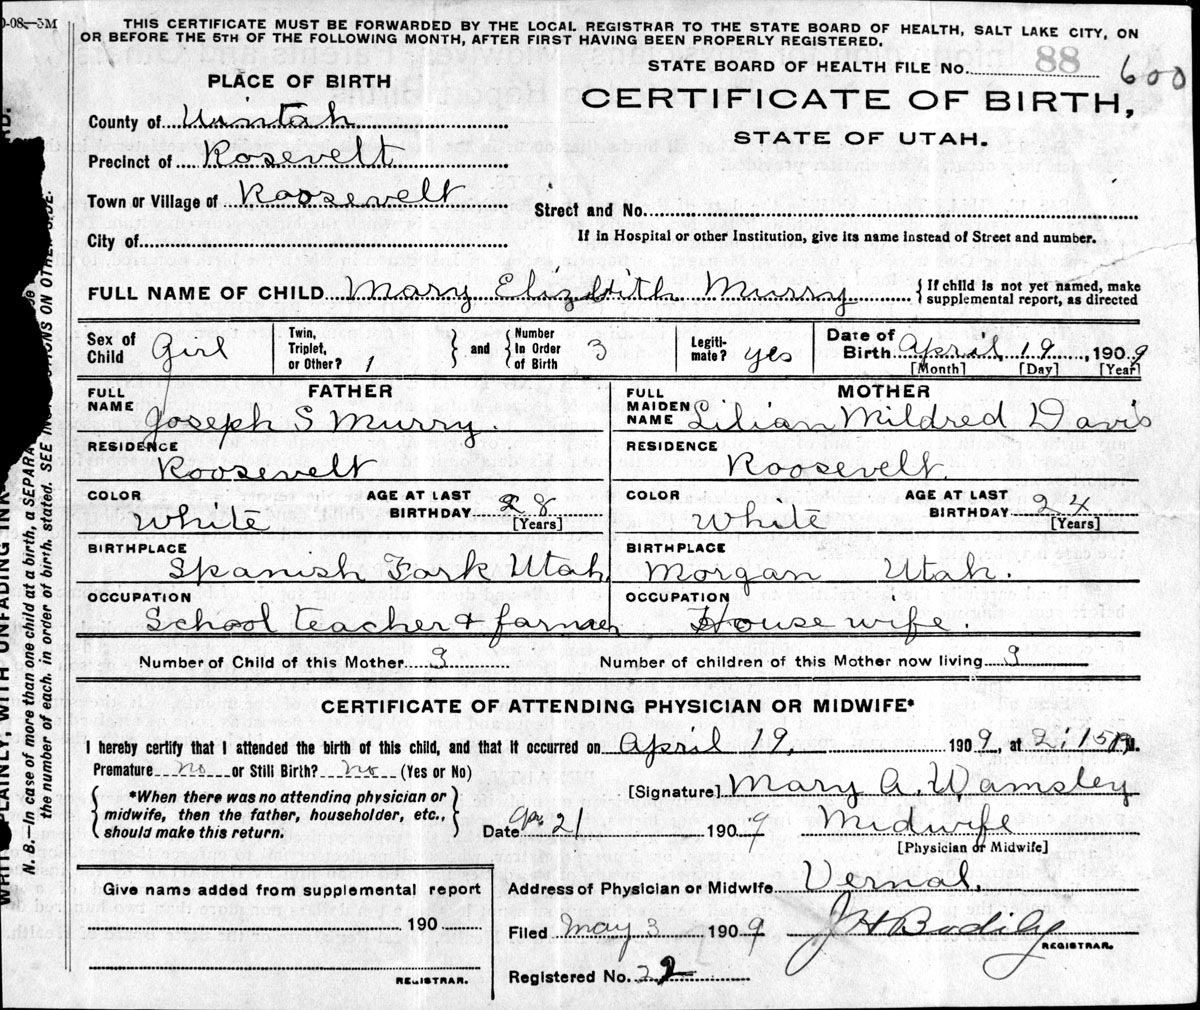 0-08—3M
THIS CERTIFICATE MUST BE FORWARDED BY THE LOCAL REGISTRAR TO THE STATE BOARD OF HEALTH, SALT LAKE CITY, ON
OR BEFORE THE 5TH OF THE FOLLOWING MONTH, AFTER FIRST HAVING BEEN PROPERLY REGISTERED.
STATE BOARD OF HEALTH FILE No. 88 600
PLACE OF BIRTH
CERTIFICATE OF BIRTH,
STATE OF UTAH.
County of Uintah
Precinct of Rosevelt
Town or Village of Roosevelt
Street and No.
City of
If in Hospital or other Institution, give its name instead of Street and number.
FULL NAME OF CHILD Mary Elizbith Murry { If child is not yet named, make
supplemental report, as directed
Sex of
Child Girl
Twin,
Triplet,
or Other? 1
and
Number
In Order
of Birth 3
Legiti-
mate? yes
Date of
Birth April 19, 1909
[Month] [Day] [Year]
FATHER
FULL
NAME Joseph S Murry.
MOTHER
FULL
MAIDEN
NAME Lilian Mildred Davis
RESIDENCE Roosevelt
RESIDENCE Roosevelt.
COLOR White
AGE AT LAST
BIRTHDAY 28
[Years]
COLOR White
AGE AT LAST
BIRTHDAY 24
[Years]
BIRTHPLACE Spanish Fork Utah
BIRTHPLACE Morgan Utah.
OCCUPATION School teacher & farmer
OCCUPATION House wife.
Number of Child of this Mother 3
Number of children of this Mother now living 3
CERTIFICATE OF ATTENDING PHYSICIAN OR MIDWIFE*
I hereby certify that I attended the birth of this child, and that it occurred on April 19, 1909, at 2:15 M.
Premature no or Still Birth? no (Yes or No)
*When there was no attending physician or
midwife, then the father, householder, etc.,
should make this return.
[Signature] Mary A. Wamsley
Date Ap. 21 1909 Midwife
[Physician or Midwife]
Give name added from supplemental report
190
REGISTRAR.
Address of Physician or Midwife Vernal.
Filed May 3 1909 J H Bodily
REGISTRAR.
Registered No. 22
PLAINLY, WITH UNFADING INK
N. B. In case of more than one child at a birth, a SEPARA
the number of each, in order of birth, stated. SEE IN CTIONS ON OTHER SIDE.